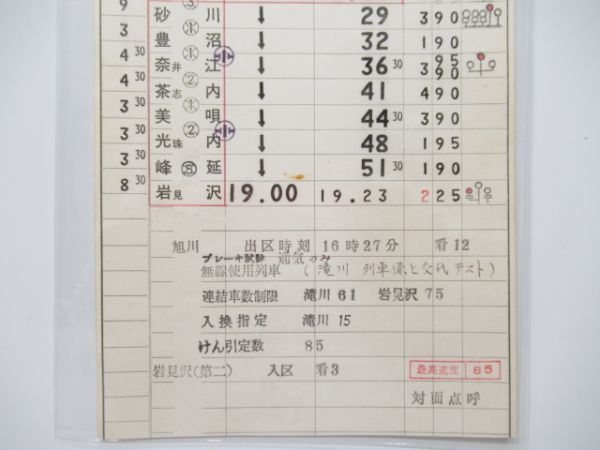 9 砂川 ③ ↓ 29 390
3 豊沼 ㊌ ↓ 32 190
4 30 奈井江 ① ↓ 36 30 395 90
4 30 茶志内 ② ↓ 41 490
3 30 美唄 ① ↓ 44 30 390
3 30 光珠内 ② ↓ 48 195
3 30 峰延 ↓ 51 30 190
8 30 岩見沢 19.00 19.23 225
旭川 出区時刻 16時27分 看12
ブレーキ試験 通気のみ
無線使用列車 (滝川 列車係と交代テスト)
連結車数制限 滝川 61 岩見沢 75
入換指定 滝川 15
けん引定数 85
岩見沢(第二) 入区 看3 最高速度 85
対面点呼